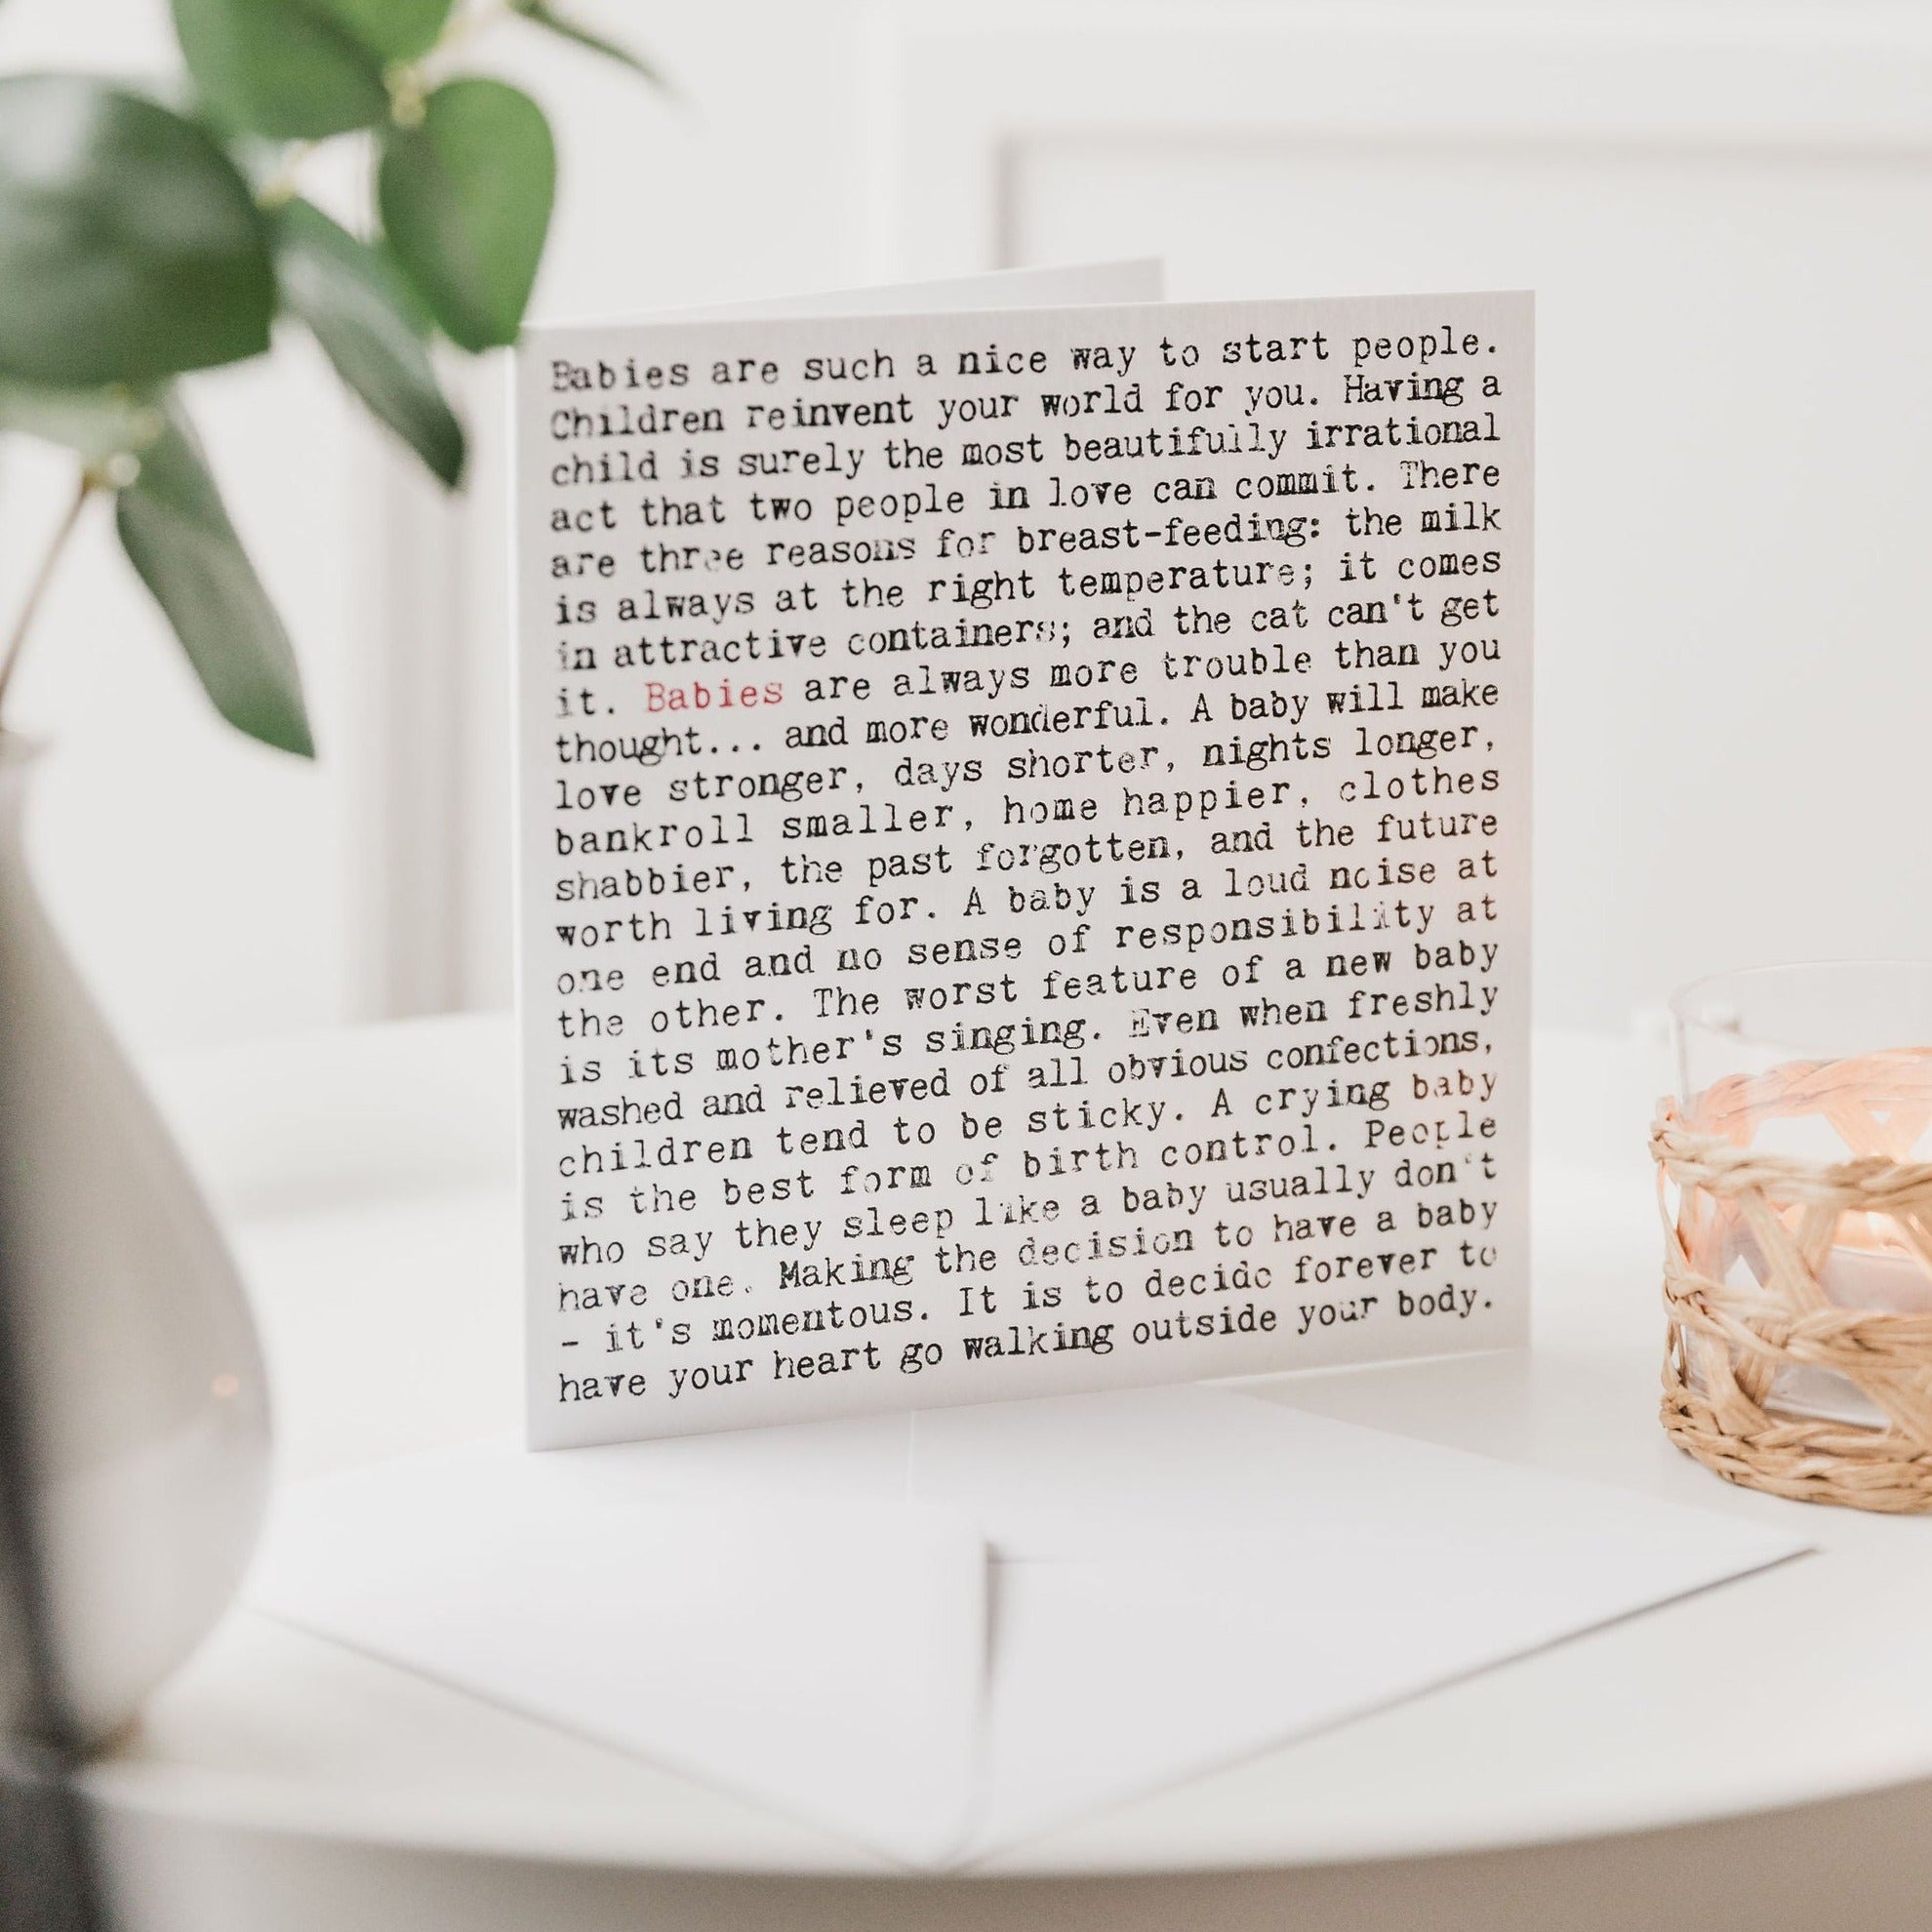 Babies are such a nice way to start people.
Children reinvent your world for you. Having a
child is surely the most beautifully irrational
act that two people in love can commit. There
are three reasons for breast-feeding: the milk
is always at the right temperature; it comes
in attractive containers; and the cat can't get
it. Babies are always more trouble than you
thought... and more wonderful. A baby will make
love stronger, days shorter, nights longer,
bankroll smaller, home happier, clothes
shabbier, the past forgotten, and the future
worth living for. A baby is a loud noise at
one end and no sense of responsibility at
the other. The worst feature of a new baby
is its mother's singing. Even when freshly
washed and relieved of all obvious confections,
children tend to be sticky. A crying baby
is the best form of birth control. People
who say they sleep like a baby usually don't
have one. Making the decision to have a baby
- it's momentous. It is to decide forever to
have your heart go walking outside your body.